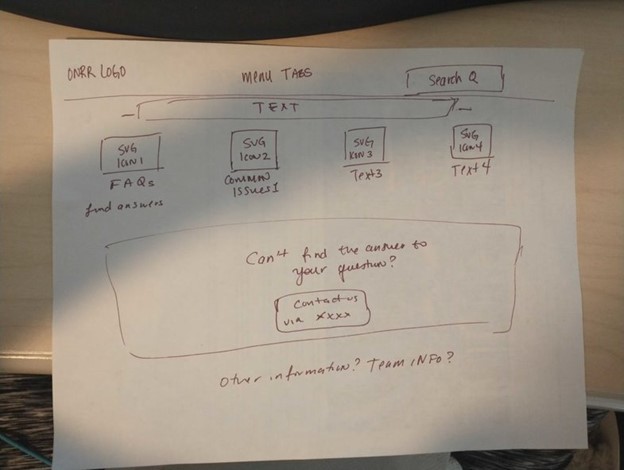 ONRR LOGO
Menu TABS
Search Q
TEXT
SVG
Icon 1
FAQs
find answers
SVG
Icon 2
Common
Issues 1
SVG
Icon 3
Text 3
SVG
Icon 4
Text 4
Can't find the answer to
your question?
Contact us
via xxxx
Other information? Team INFO?